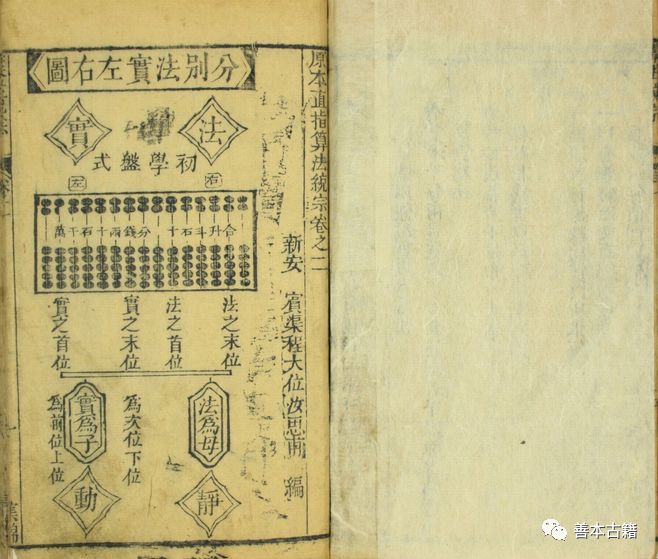 原本直指算法統宗卷之二
新安 賓渠程大位汝思甫 編
分別法實左右圖
法
實
初學盤式
右
左
合升斗石十 分錢兩十石千萬
法之末位
法之首位
實之末位
實之首位
法為母
為次位下位
實為子
為前位上位
靜
動
集錦
善本古籍